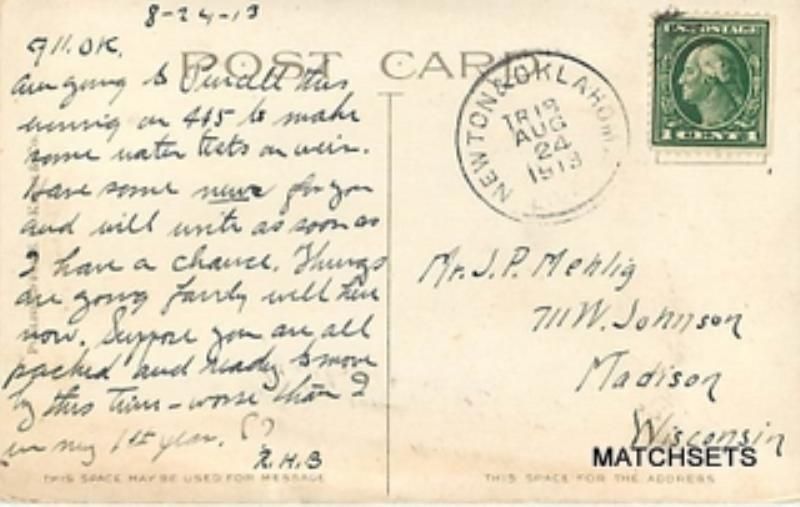 8-24-13
POST CARD
911. OK.
Are going to Purcell this
evening on 405 to make
some water tests on weir.
Have some news for you
and will write as soon as
I have a chance. Things
are going fairly well here
now. Suppose you are all
packed and ready to move
by this time - worse than I
in my 1st year. (?)
R.H.B
THIS SPACE MAY BE USED FOR MESSAGE
NEWTON & OKLAHOM
TR 19
AUG
24
1913
U.S. POSTAGE
1 CENT 1
Mr. J. P. Mehlig
711 W. Johnson
Madison
Wisconsin
MATCHSETS
THIS SPACE FOR THE ADDRESS